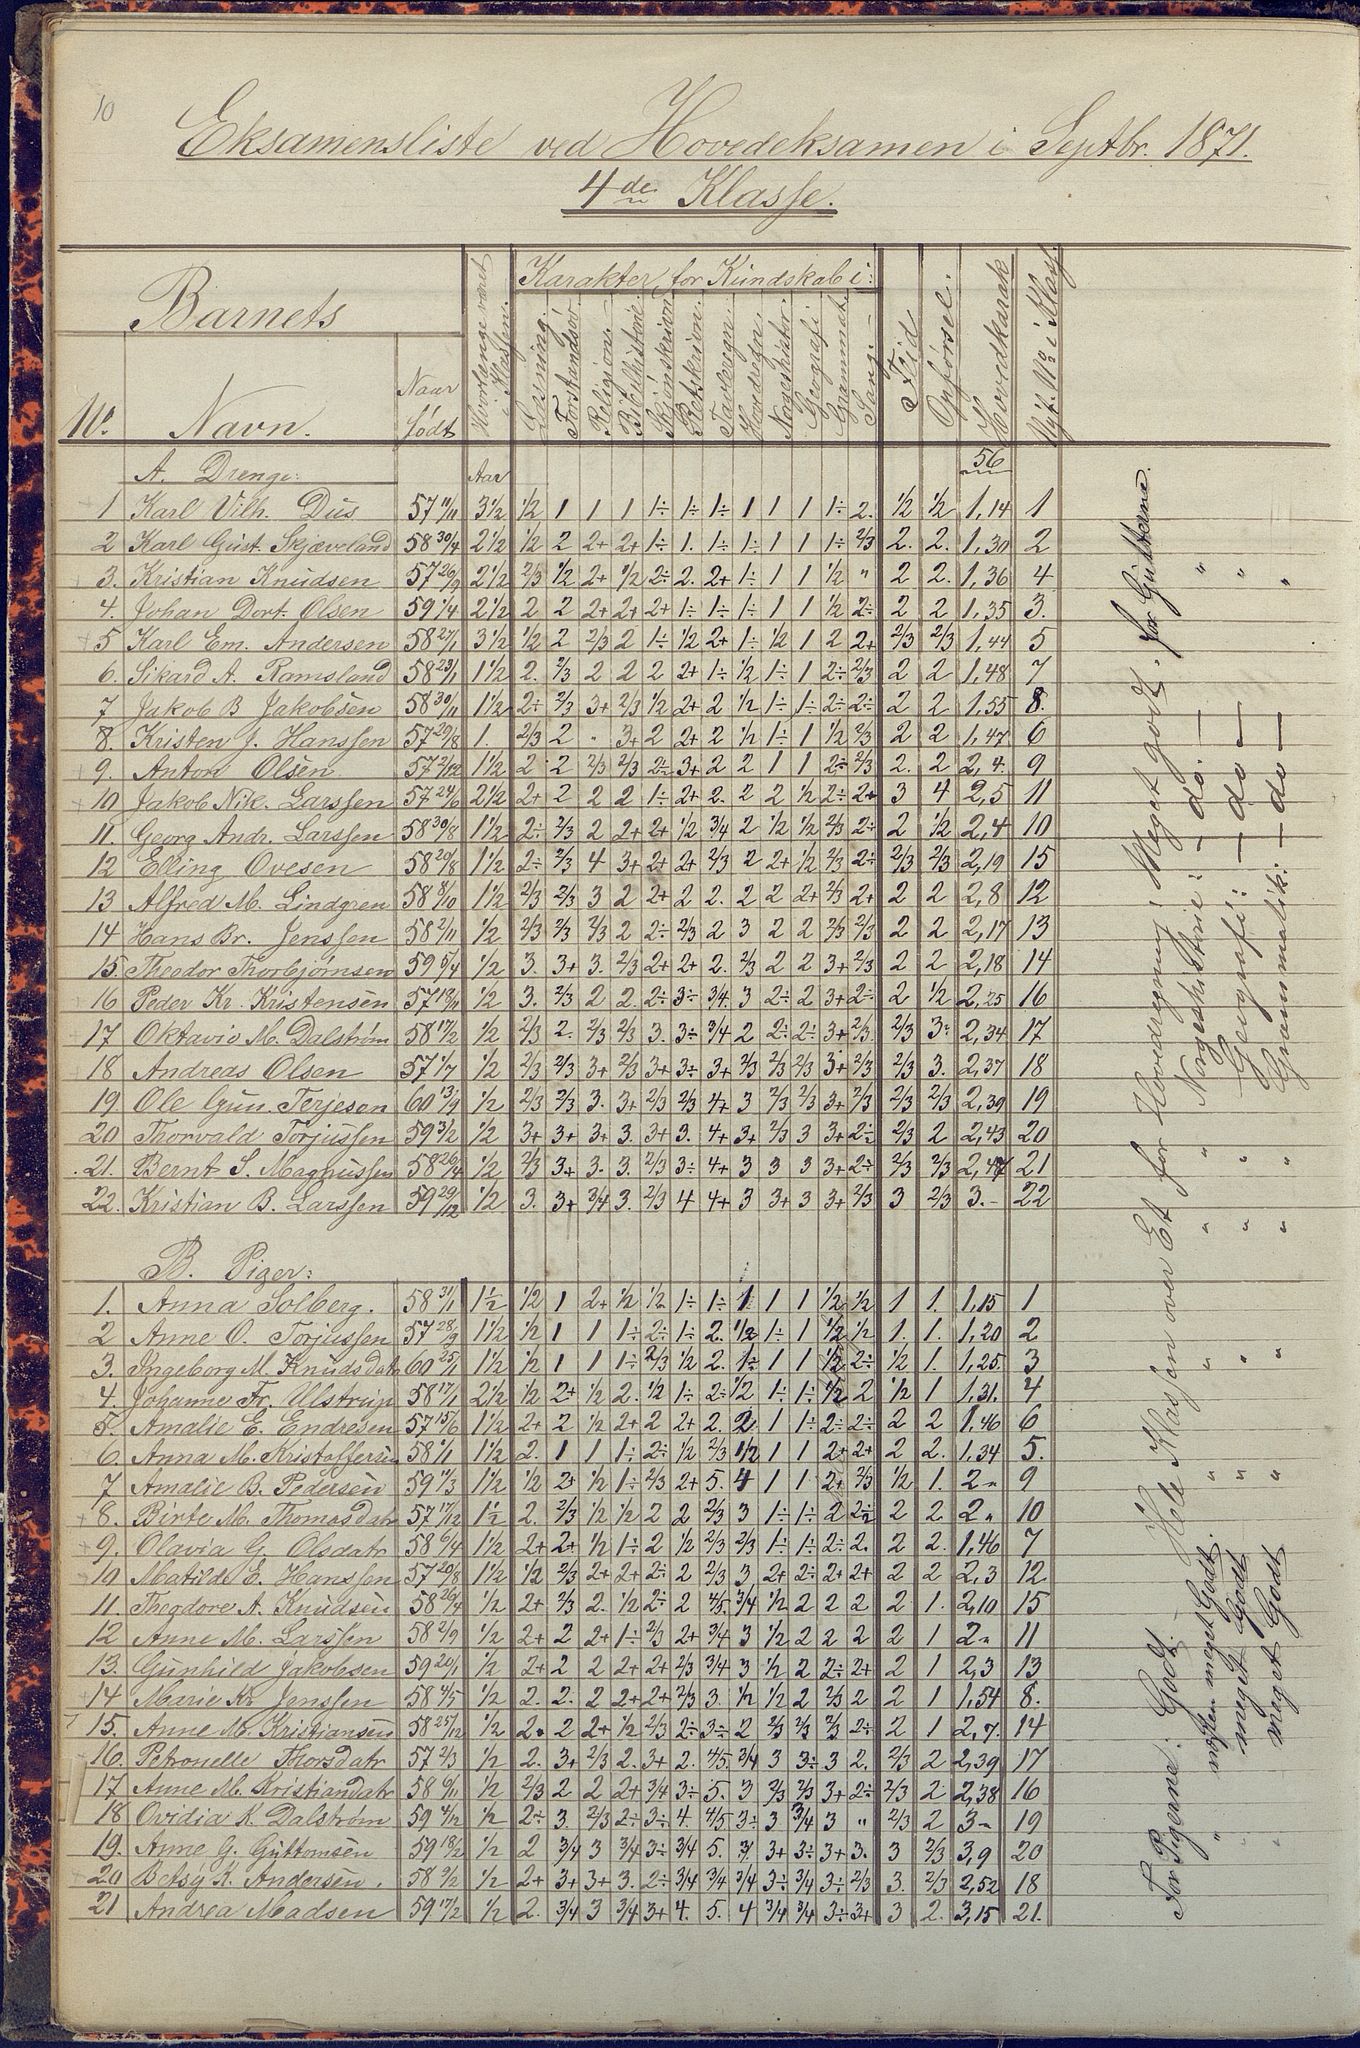 10
Eksamensliste ved Hovedeksamen i Septbr. 1871.
4de Klasse.
Barnets
No. Navn. Naar født
Hvorlænge været i Klassen.
Karakter for Kundskab i:
Læsning. Forstandsöv. Religion. Bibelhistorie. Skjönskrivn Retskrivn. Tavleregn. Hovedregn. Norgeshistor. Geografi Grammat. Sang.
Flid Opförsel. Hovedkarak Nyt No i Klass.
A. Drenge: Aar 56
1 Karl Vilh. Dus 57 11/11 3 1/2 1/2 1 1 1 1÷ 1÷ 1÷ 1 1 1 1÷ 2. 1/2 1/2 1,14 1
2 Karl Gust. Skjæveland 58 30/4 2 1/2 1/2 2 2+ 2+ 1÷ 1. 1÷ 1÷ 1 1 1÷ 2/3 2. 2. 1,30 2
3. Kristian Knudsen 57 26/9 2 1/2 2/3 1/2 2+ 1/2 2÷ 2. 2+ 1÷ 1 1 1/2 " 2 2. 1,36 4
4. Johan Dort. Olsen 59 1/4 2 1/2 2 2 2+ 2+ 2+ 1÷ 1÷ 1÷ 1 1 1/2 2÷ 2 2 1,35 3.
5 Karl Em. Andersen 58 27/1 3 1/2 1/2 2 2/3 2 1÷ 1/2 2+ 1÷ 1/2 1 2 2+ 2/3 2/3 1,44 5
6. Sikard A. Ramsland 58 23/1 1 1/2 2. 2/3 2 2 2 2+ 1÷ 1/2 1÷ 1 2÷ 2/3 2 2 1,48 7
7 Jakob B Jakobsen 58 30/11 1 1/2 2÷ 2/3 3+ 2/3 1/2 2+ 2 1/2 1÷ 1÷ 2÷ 2÷ 2 2 1,55 8.
8. Kristen J. Hanssen 57 29/8 1. 2/3 2 " 3+ 2 2+ 2 1/2 1÷ 1 1/2 2/3 2 2 1,47 6
9. Anton Olsen 57 2/12 1 1/2 2 2 2/3 2/3 2÷ 3+ 2 2 1 1 2÷ 2/3 2. 2 2,4. 9
10 Jakob Nik. Larssen 57 24/6 2 1/2 2+ 2 2 2 1÷ 2+ 2. 2 2 1/2 2÷ 2+ 3 4 2,5 11
11. Georg Andr. Larssen 58 30/8 1 1/2 2÷ 2/3 2 2+ 2+ 1/2 3/4 2 1/2 1/2 2/3 2÷ 2 1/2 2,4 10
12 Elling Ovesen 58 20/8 1 1/2 2÷ 2/3 4 3+ 2+ 2+ 2/3 2 2+ 1/2 2/3 2÷ 2/3 2/3 2,19 15
13 Alfred M. Lindgren 58 8/10 1 1/2 2/3 2/3 3 2 2+ 2 2. 2 2 2+ 2/3 2+ 2 2 2,8 12
14 Hans Br. Jenssen 58 2/11 1/2 2/3 2/3 2/3 2 2÷ 2/3 2 3 2 2 2/3 2/3 2 2 2,17 13
15. Theodor Thorbjørnsen 59 6/4 1/2 3. 3+ 3. 2/3 2+ 2+ 2. 2/3 2 2 3+ 2/3 2 2 2,18 14
16 Peder Kr. Kristensen 57 19/11 1/2 3. 2/3 2 2. 2÷ 3÷ 3/4. 3 2÷ 2 3+ 2÷ 2 1/2 2,25 16
17 Oktavis M. Dalstrøm 58 17/2 1/2 2/3 2. 2/3 2/3 3. 3÷ 3/4 2 2÷ 2÷ 3+ 2/3. 2/3 3÷ 2,34 17
18 Andreas Olsen 57 1/7 1/2 2/3 2/3 3+ 2/3 3+ 3÷ 3+ 2/3 2/3 2/3 3+ 2/3 2/3 3. 2,37 18
19 Ole Gun. Terjesen 60 13/9 1/2 2/3 2/3 3. 3+ 2/3 2/3 4+ 3 2/3 2/3 3+ 2/3 2/3 2/3 2,39 19
20 Thorvald Torjussen 59 3/2 1/2 3+ 3+ 3+ 3. 3+ 3. 4+ 3+ 2/3 3 3+ 2÷ 2/3 2 2,43 20
21. Bernt S. Magnussen 58 26/4 1/2 2/3 3+ 3. 3. 2/3 3÷ 4+ 3 3 3 3+ 2÷ 2/3 2/3 2,47 21
22. Kristian B. Larssen 59 29/12 1/2 3. 3+ 3/4 3. 2/3 4 4+ 3 3+ 3 3+ 2/3 3 2/3 3.- 22
B. Piger:
1. Anna Solberg. 58 31/1 1 1/2 1/2 1 2+ 1/2 1/2 1÷ 1÷ 1 1 1 1/2 1/2 1 1. 1,15 1
2 Anne O. Torjussen 57 28/9 1 1/2 1/2 1 1 1÷ 2÷ 1÷ 2. 1/2 1÷ 1 1/2 1/2 1. 1. 1,20 2
3. Ingeborg M. Knudsdatr 60 25/1 1 1/2 1/2 1 1 1÷ 2/3 1/2 2. 1÷ 1 1 1/2 2÷ 1/2 1. 1,25. 3
4. Johanne Fr. Ulstrup 58 17/1 2 1/2 1/2 2+ 1/2 2. 1/2 1÷ 2÷ 1/2 1÷ 1÷ 1/2 2 1/2 1 1,31. 4
5. Amalie E. Endresen 57 15/6 1 1/2 2+ 2 1/2 2+ 2 2+ 2. 2 1 1÷ 2÷ 2÷ 2 2 1,46 6
6. Anna M. Kristoffersen 58 1/1 1 1/2 2. 1 1 1÷ 2÷ 1/2 2/3 1/2 1 1 2+ 2+ 2 2. 1,34 5.
7 Amalie B. Pedersen 59 11/3 1 1/2 1/2 2+ 1/2 1÷ 2/3 2+ 5. 4 1 1 2+ 2/3 1/2 1. 2" 9
8. Birte M. Thomasdatr 57 17/12 1 1/2 2. 2/3 1/2 1/2 2 2 2/3 3 1÷ 1÷ 2 2÷ 2 2 2" 10
9. Olavia G. Olsdatr 58 6/4 1 1/2 2+ 2+ 1/2 1÷ 2 1/2 2/3 2/3 1÷ 1÷ 2÷ 2. 2 2. 1,46 7
10 Matilde E. Hanssen 57 20/8 1 1/2 1/2 2/3 2+ 2+ 2÷ 2 2/3 3 2+ 2÷ 2+ 2+ 2 2 2,3 12
11. Theodore A. Knudsen 58 26/4 1/2 2+ 2/3 2. 1/2 2÷ 2 4/5. 3/4 1/2 2 2 2 2 1. 2,10 15
12 Anne M. Larssen 58 2/9 1/2 2+ 2 2+ 1÷ 2/3 2+ 3/4 3 1/2 2 2 2 2 1 2" 11
13. Gunhild Jakobsen 59 20/1 1/2 2+ 2 2 2+ 2+ 2/3 3/4 3 1/2 2 2÷ 2+ 2 1 2,3 13
14 Marie Kr Jenssen 58 4/5 1/2 2. 2. 2 2+ 2+ 2/3 3. 1/2 1/2 2 2/3 2 2 1 1,54 8.
15. Anne M. Kristiansen 58 25/12 1/2 2. 2 2+ 1/2 2/3 2÷ 3÷ 2 2/3 2/3 2/3 2÷ 2 1 2,7. 14
16. Petronelle Thorsdatr 57 2/3 1/2 2. 3+ 2/3 2. 3+ 2. 4/5. 3/4 3 3÷ 3 2. 2/3 2 2,39 17
17 Anne M. Kristiandatr 58 6/11 1/2 2/3 2 2 2+ 3/4 3÷ 5. 3 2/3 2/3 3+ 2÷ 2/3 2 2,38 16
18 Ovidia K. Dalstrøm 59 4/12 1/2 2÷ 3. 2/3 2÷ 3÷ 4. 4/5 3÷ 3 3/4 3 " 2/3 2 3" 19
19. Anne G. Guttomsen 59 18/2 1/2 2 3/4 3 3/4 3÷ 3/4 5. 3/4 3+ 3÷ 3+ 3. 3 2/3 3,9 20
20 Betsy K. Andersen. 58 9/2 1/2 2+ 3+ 3+ 3. 2÷ 3/4 3/4 3/4 3÷ 3/4 3÷ 2/3 3. 2/3 2,52 18
21 Andrea Madsen 59 17/2 1/2 2. 3/4 3 3/4 3+ 4. 5. 4 3/4 3/4 3÷ 3+ 3 2. 3,15 21.
Hele Klassen over Et for Hovedregning: Meget godt, for Guttene.
" " " Norgeshistorie: — do. — "
" " " Geografi: — do — "
" " " Grammatik: — do — "
For Pigerne: Godt.
" næsten meget Godt.
" meget Godt
" meget Godt